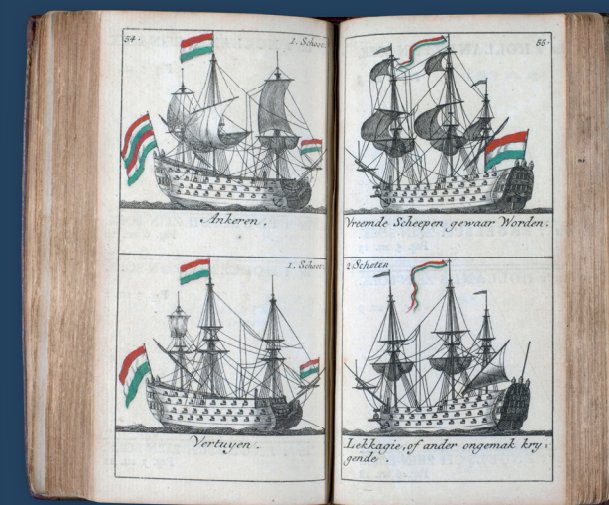 54.
1. Schoot.
Ankeren.
1. Schoot.
Vertuyen.
55.
Vreemde Scheepen gewaar Worden.
2. Schoten
Lekkagie, of ander ongemak kry:
gende.